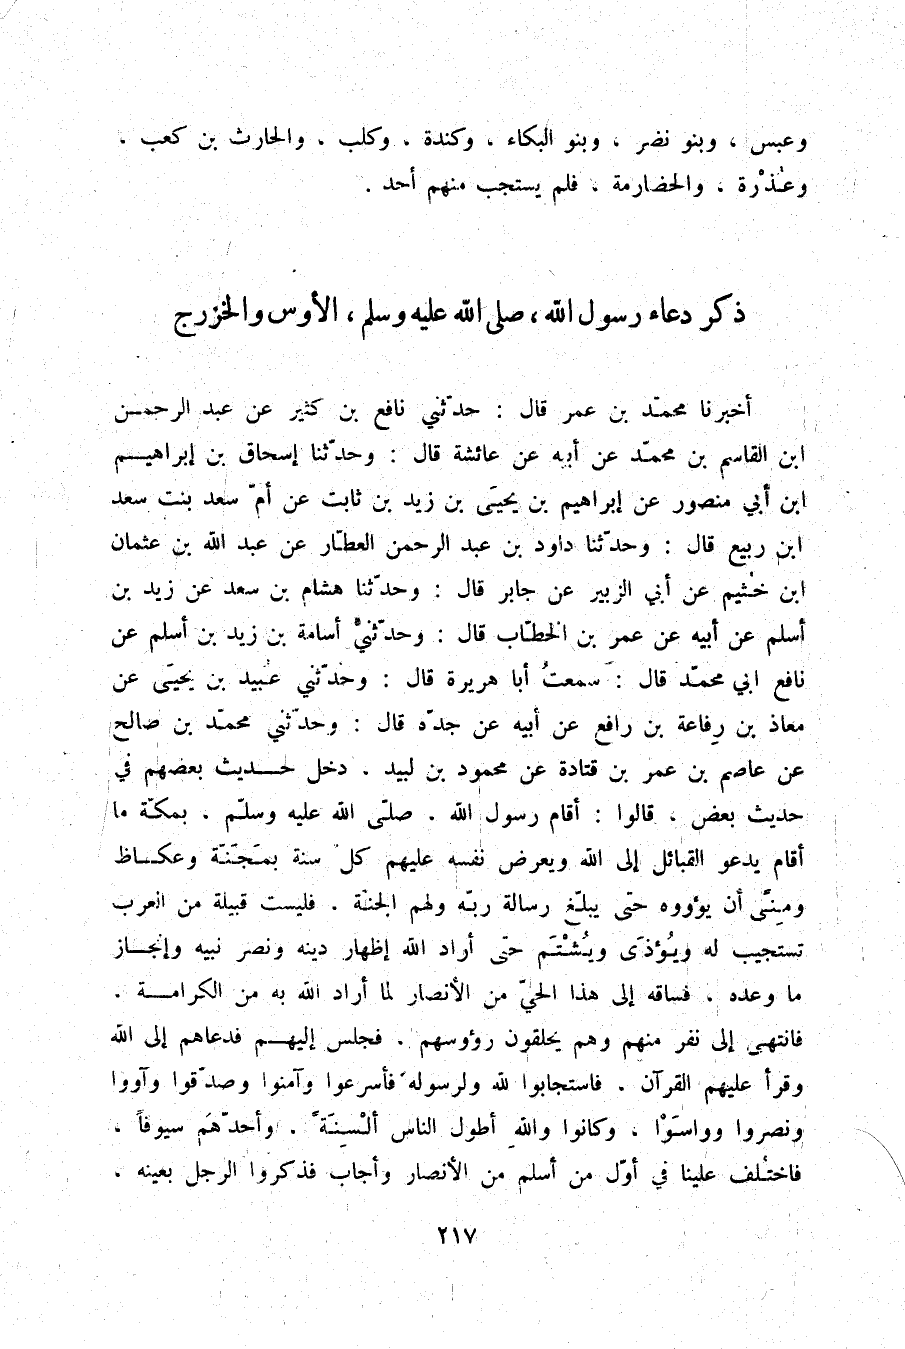 وعبس ، وبنو نضر ، وبنو البكاء ، وكندة ، وكلب ، والحارث بن كعب ،
وعُذْرة ، والحضارمة ، فلم يستجب منهم أحد .
ذكر دعاء رسول الله ، صلى الله عليه وسلم ، الأوس والخزرج
أخبرنا محمّد بن عمر قال : حدّثني نافع بن كثير عن عبد الرحمن
ابن القاسم بن محمّد عن أبيه عن عائشة قال : وحدّثنا إسحاق بن إبراهيم
ابن أبي منصور عن إبراهيم بن يحيَى بن زيد بن ثابت عن أمّ سعد بنت سعد
ابن ربيع قال : وحدّثنا داود بن عبد الرحمن العطّار عن عبد الله بن عثمان
ابن خُثيم عن أبي الزبير عن جابر قال : وحدّثنا هشام بن سعد عن زيد بن
أسلم عن أبيه عن عمر بن الخطّاب قال : وحدّثني أسامة بن زيد بن أسلم عن
نافع ابي محمّد قال : سَمعتُ أبا هريرة قال : وحدّثني عُبيد بن يحيَى عن
معاذ بن رِفاعة بن رافع عن أبيه عن جدّه قال : وحدّثني محمّد بن صالح
عن عاصم بن عمر بن قتادة عن محمود بن لبيد . دخل حديث بعضهم في
حديث بعض ، قالوا : أقام رسول الله ، صلّى الله عليه وسلّم ، بمكّة ما
أقام يدعو القبائل إلى الله ويعرض نفسه عليهم كلّ سنة بمَجَنّة وعكاظ
ومِنًى أن يؤووه حتى يبلّغ رسالة ربّه ولهم الجنّة . فليست قبيلة من العرب
تستجيب له ويُؤذَى ويُشْتَم حتى أراد الله إظهار دينه ونصر نبيه وإنجاز
ما وعده ، فساقه إلى هذا الحيّ من الأنصار لما أراد الله به من الكرامة .
فانتهى إلى نفر منهم وهم يحلقون رؤوسهم . فجلس إليهم فدعاهم إلى الله
وقرأ عليهم القرآن . فاستجابوا لله ولرسوله فأسرعوا وآمنوا وصدّقوا وآووا
ونصروا وواسَوْا ، وكانوا والله أطول الناس ألْسِنَةً . وأحدّهَم سيوفاً ،
فاختُلف علينا في أوّل من أسلم من الأنصار وأجاب فذكروا الرجل بعينه .
٢١٧